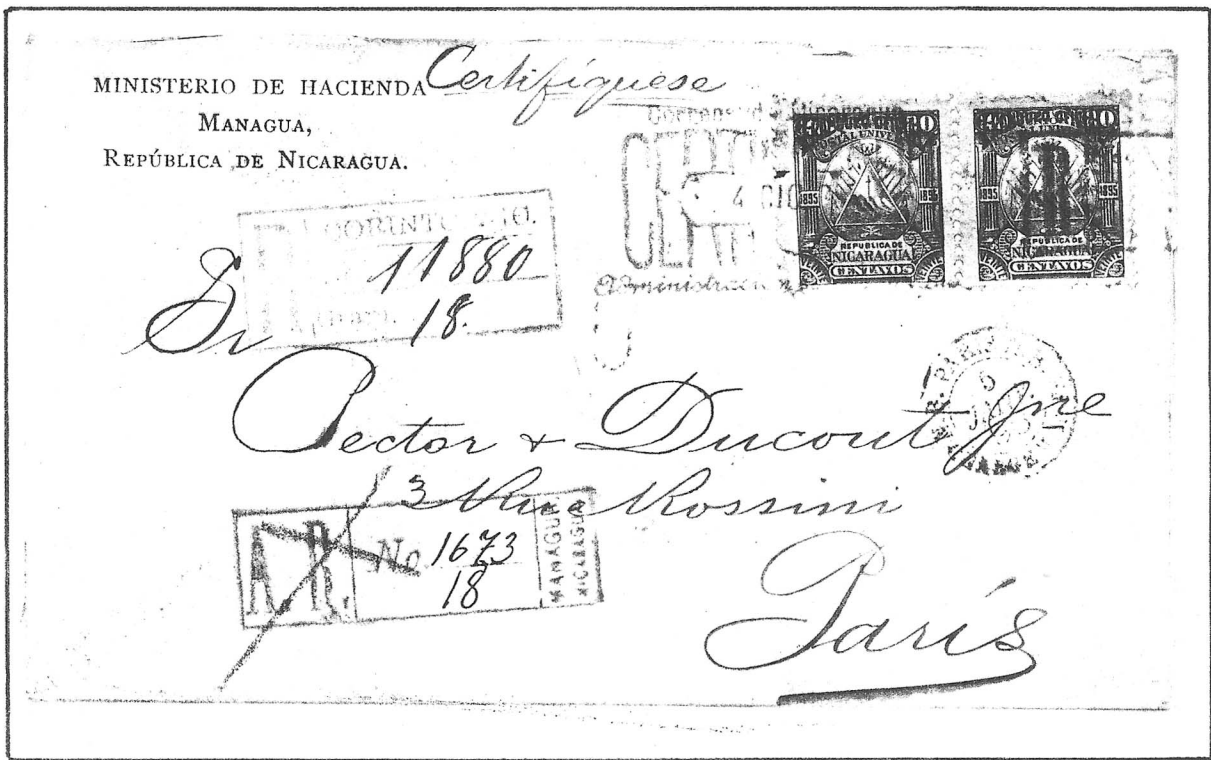 MINISTERIO DE HACIENDA
MANAGUA,
REPÚBLICA DE NICARAGUA.
Certifíquese
1895 1895
REPUBLICA DE
NICARAGUA
CENTAVOS
1895 1895
REPUBLICA DE
NICARAGUA
CENTAVOS
CORINTO
11880
18
4 DIC
Sr
Pector & Ducout Jne
3 Rue Rossini
París
A R.
No 1673
18
MANAGUA
NICARAGUA